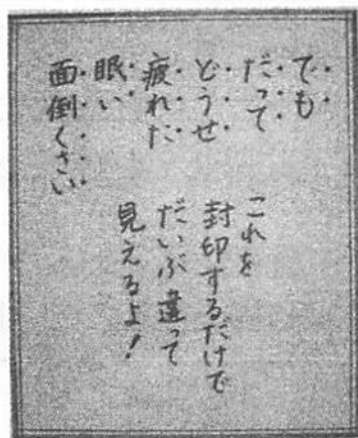 でも
だって
どうせ
疲れた
眠い
面倒くさい
これを
封印するだけで
だいぶ違って
見えるよ!